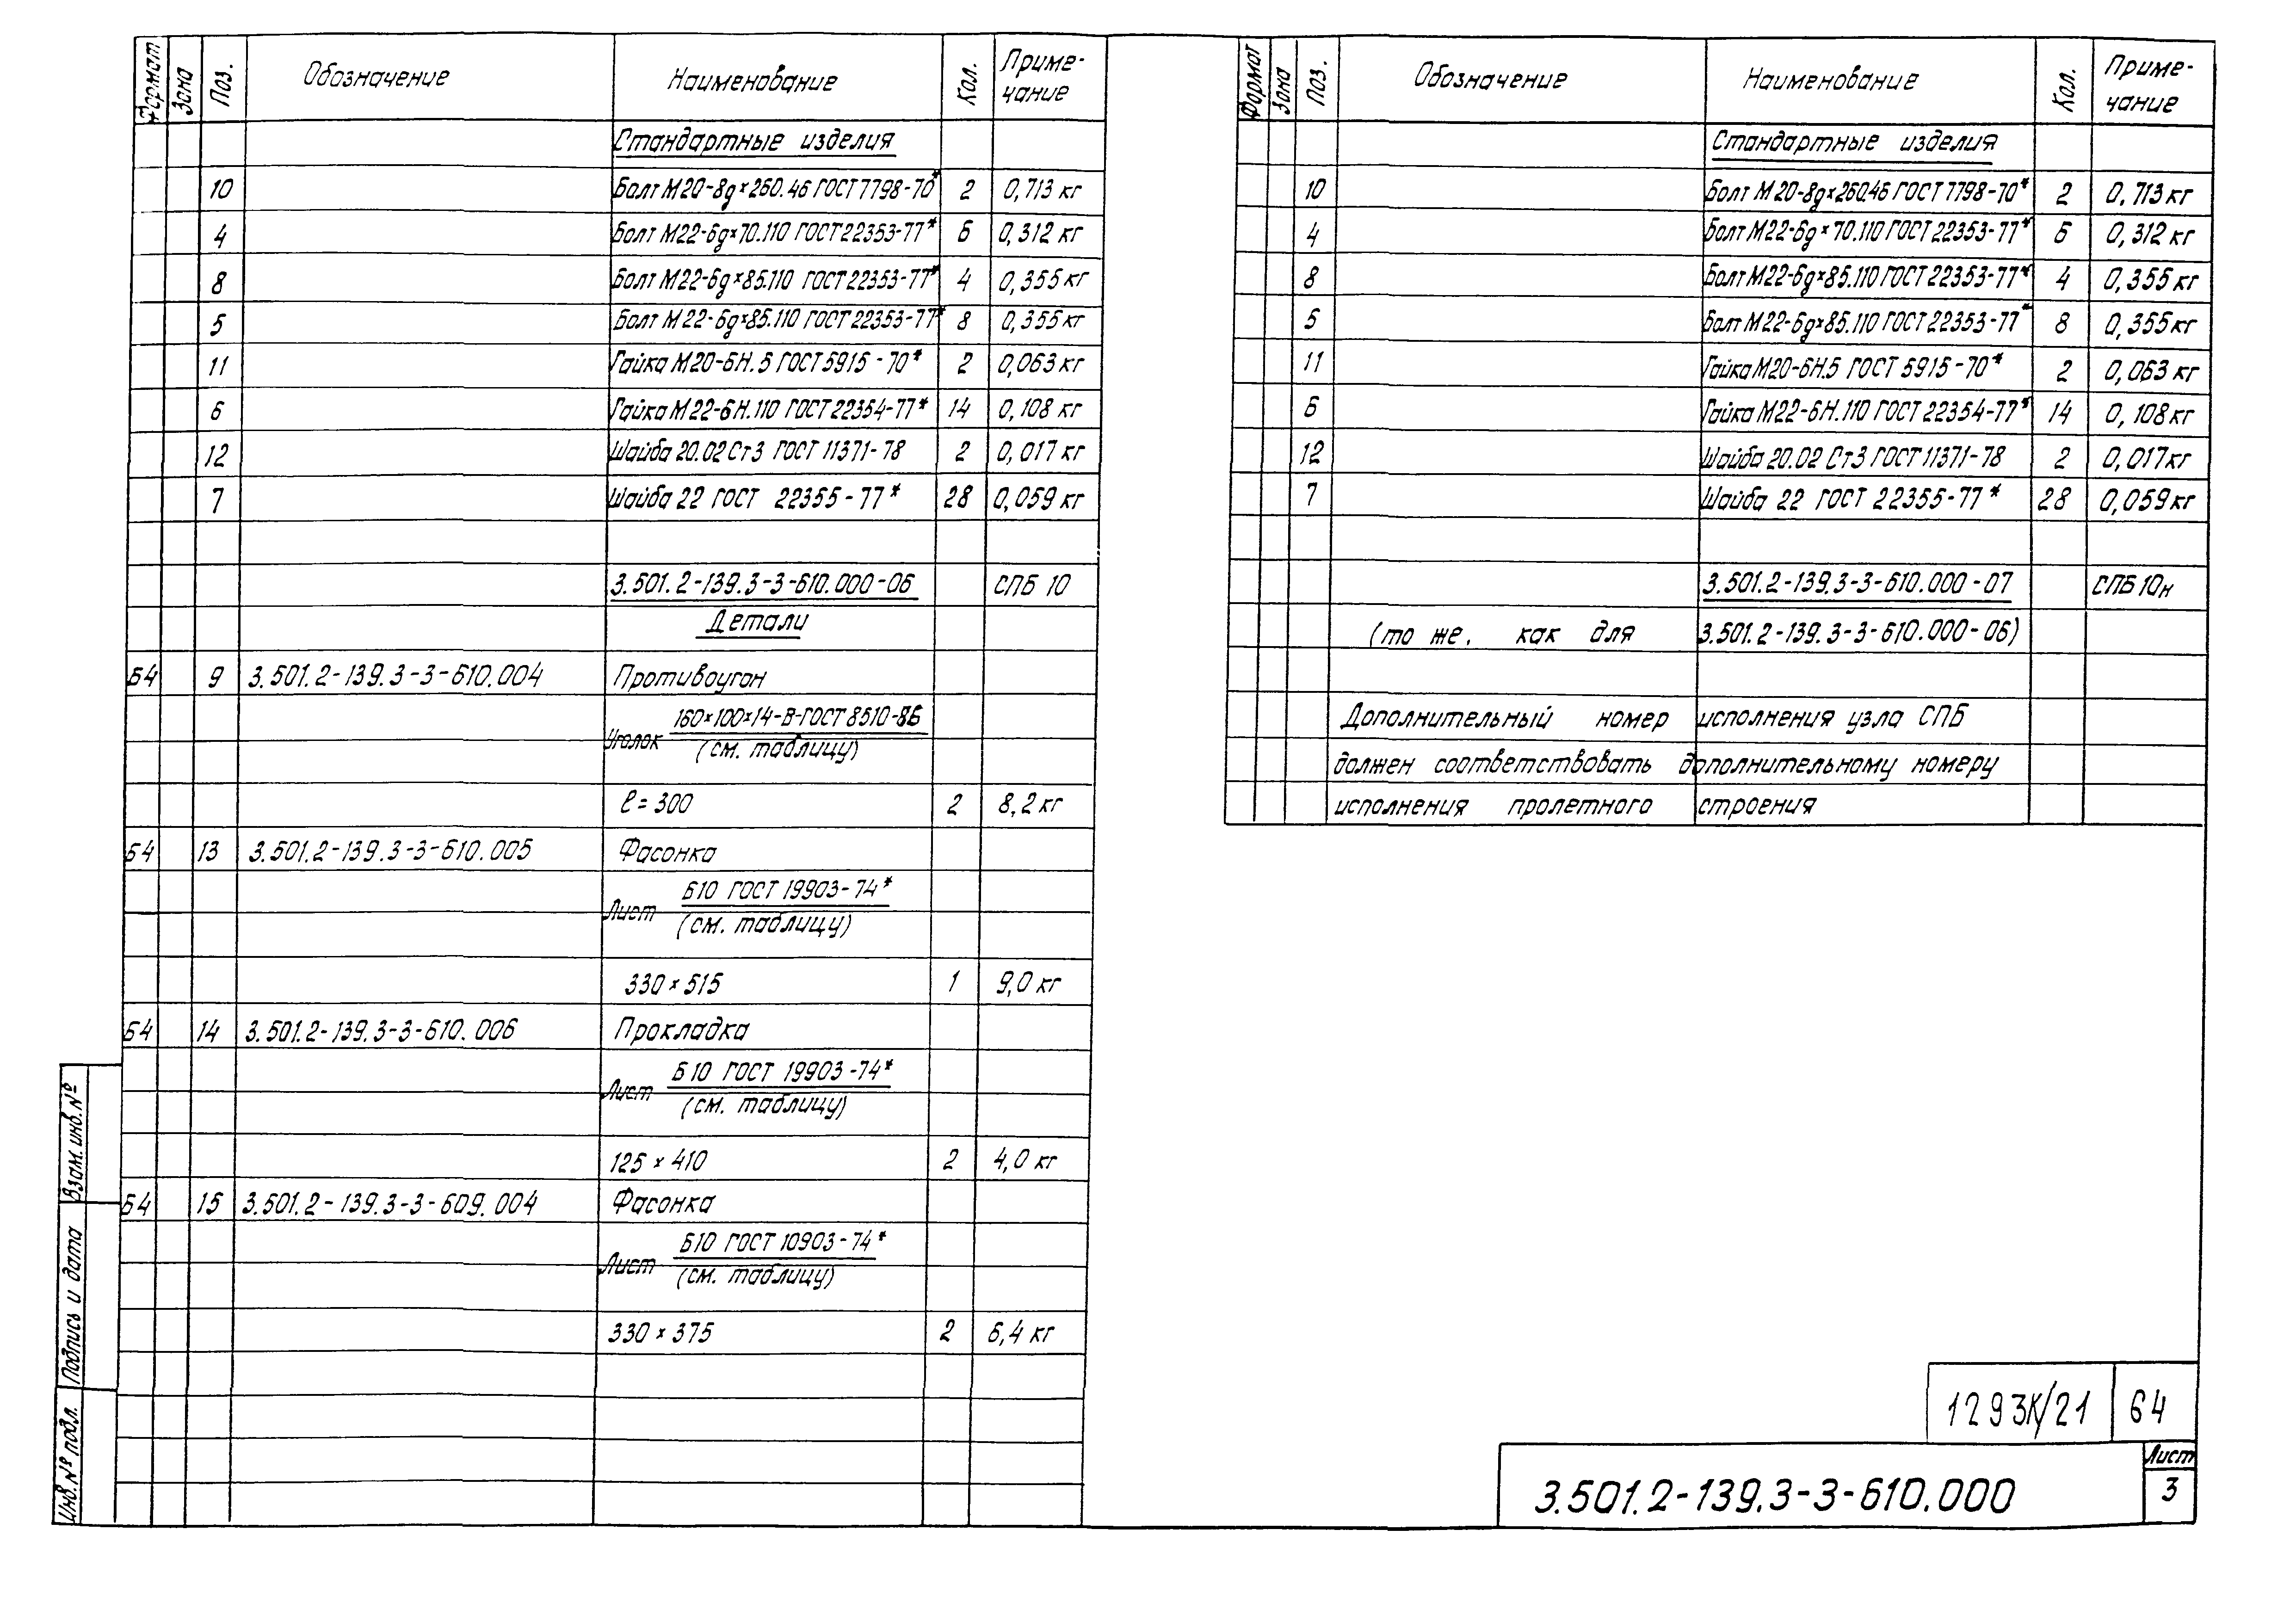 Формат Зона Поз. Обозначение Наименование Кол. Приме-
чание
Стандартные изделия
10 Болт М20-8g×260.46 ГОСТ 7798-70* 2 0,713 кг
4 Болт М22-6g×70.110 ГОСТ 22353-77* 6 0,312 кг
8 Болт М22-6g×85.110 ГОСТ 22353-77* 4 0,355 кг
5 Болт М22-6g×85.110 ГОСТ 22353-77* 8 0,355 кг
11 Гайка М20-6Н.5 ГОСТ 5915-70* 2 0,063 кг
6 Гайка М22-6Н.110 ГОСТ 22354-77* 14 0,108 кг
12 Шайба 20.02 Ст3 ГОСТ 11371-78 2 0,017 кг
7 Шайба 22 ГОСТ 22355-77* 28 0,059 кг
3.501.2-139.3-3-610.000-06 СПБ 10
Детали
Б4 9 3.501.2-139.3-3-610.004 Противоугон
Уголок 160×100×14-В-ГОСТ 8510-86
(см. таблицу)
ℓ=300 2 8,2 кг
Б4 13 3.501.2-139.3-3-610.005 Фасонка
Лист Б10 ГОСТ 19903-74*
(см. таблицу)
330×515 1 9,0 кг
Б4 14 3.501.2-139.3-3-610.006 Прокладка
Лист Б10 ГОСТ 19903-74*
(см. таблицу)
125×410 2 4,0 кг
Б4 15 3.501.2-139.3-3-609.004 Фасонка
Лист Б10 ГОСТ 10903-74*
(см. таблицу)
330×375 2 6,4 кг
Взам. инв. №
Подпись и дата
Инв. № подл.
Формат Зона Поз. Обозначение Наименование Кол. Приме-
чание
Стандартные изделия
10 Болт М20-8g×260.46 ГОСТ 7798-70* 2 0,713 кг
4 Болт М22-6g×70.110 ГОСТ 22353-77* 6 0,312 кг
8 Болт М22-6g×85.110 ГОСТ 22353-77* 4 0,355 кг
5 Болт М22-6g×85.110 ГОСТ 22353-77* 8 0,355 кг
11 Гайка М20-6Н.5 ГОСТ 5915-70* 2 0,063 кг
6 Гайка М22-6Н.110 ГОСТ 22354-77* 14 0,108 кг
12 Шайба 20.02 Ст3 ГОСТ 11371-78 2 0,017 кг
7 Шайба 22 ГОСТ 22355-77* 28 0,059 кг
3.501.2-139.3-3-610.000-07 СПБ 10н
(то же, как для 3.501.2-139.3-3-610.000-06)
Дополнительный номер исполнения узла СПБ
должен соответствовать дополнительному номеру
исполнения пролетного строения
1293К/21 64
3.501.2-139.3-3-610.000
Лист
3